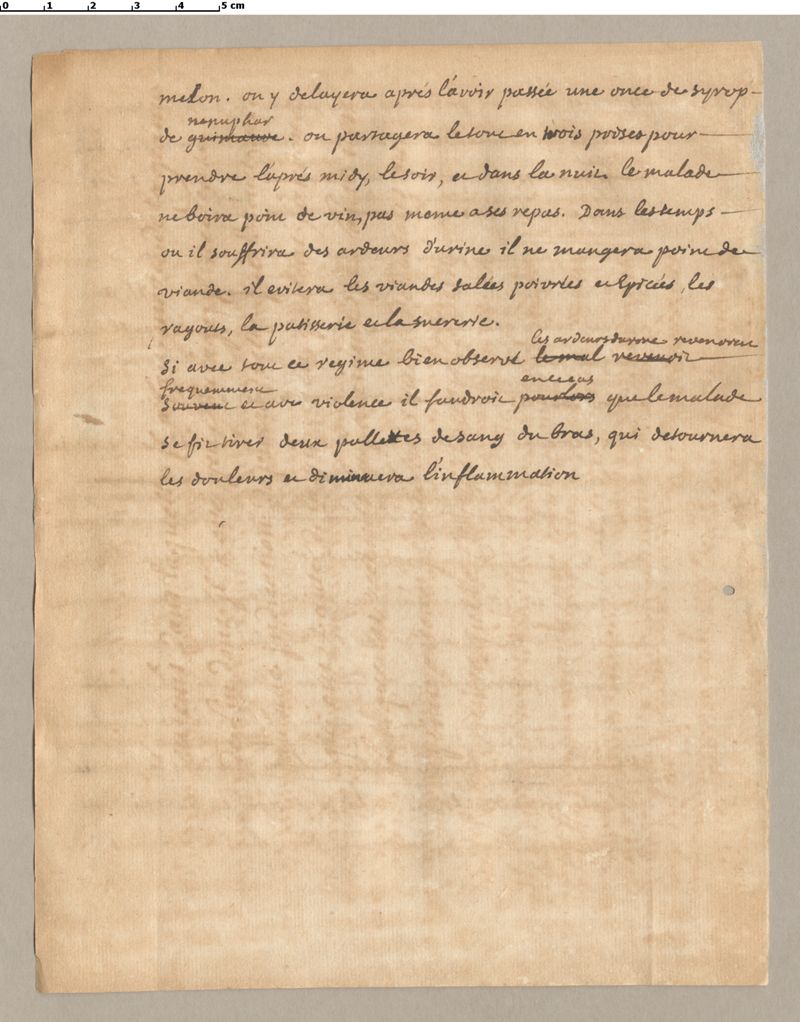 0 1 2 3 4 5 cm
melon. on y delayera aprés l'avoir passée une once de syrop
nenuphar
de guimauve. on partagera le tout en trois prises pour
prendre l'aprés midy, le soir, et dans la nuit. le malade
ne boira point de vin, pas meme a ses repas. Dans les temps
ou il souffrira des ardeurs d'urine il ne mangera point de
viande. il evitera les viandes salées poivrées et epicées, les
ragouts, la patisserie et la sucrerie.
les ardeurs d'urine revenoient
Si avec tout ce regime bien observé le mal revenoit
frequemment en ce cas
souvent et avec violence il faudroit pour lors que le malade
se fit tirer deux pallettes de sang du bras, qui detournera
les douleurs et diminuera l'inflammation